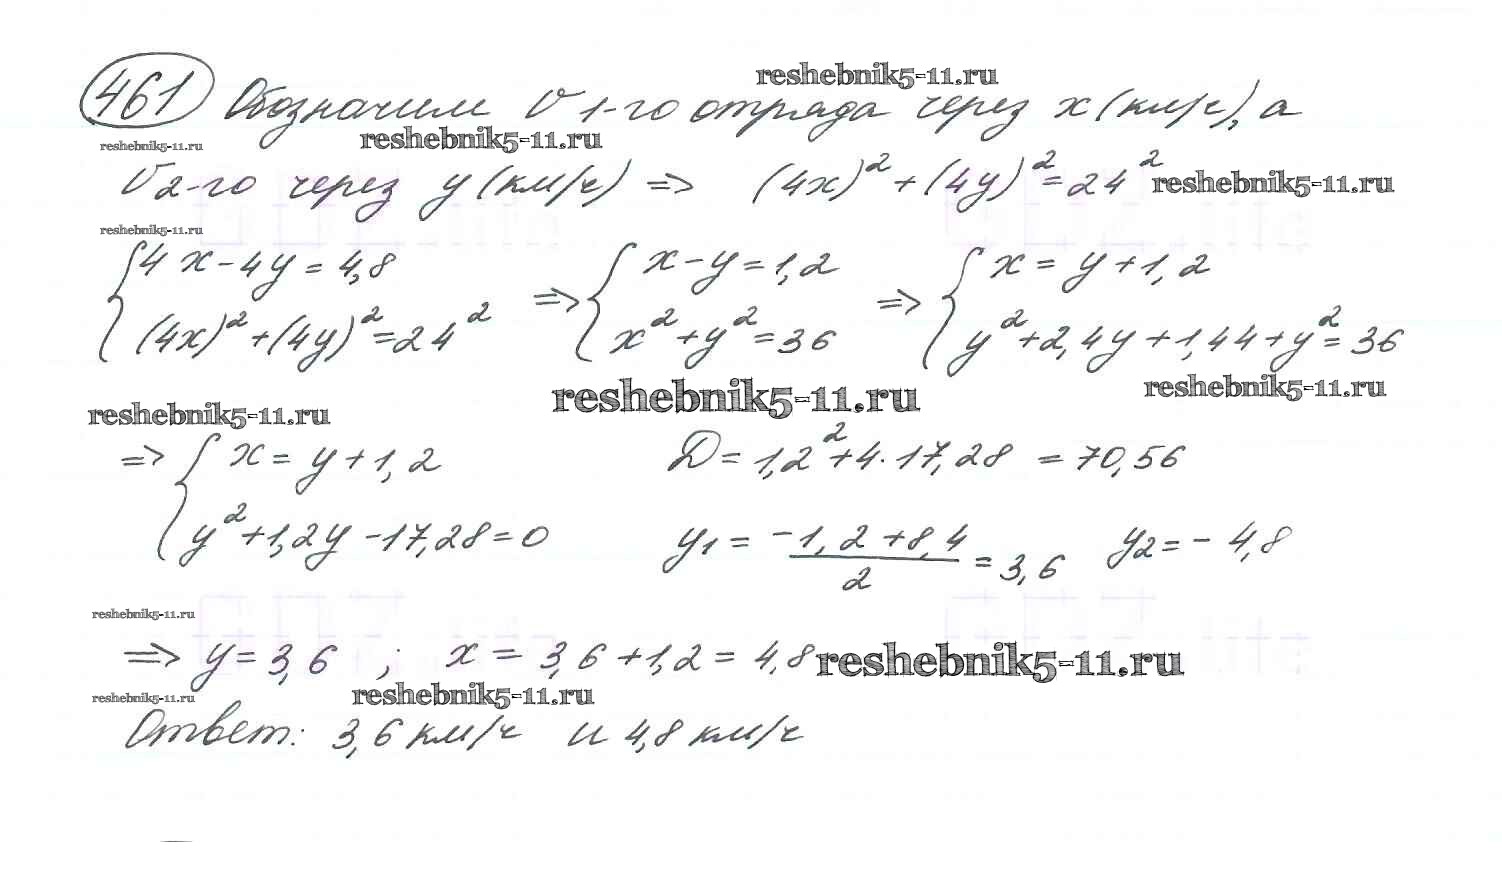 reshebnik5-11.ru
461 Обозначим V 1-го отряда через x (км/ч), а
reshebnik5-11.ru reshebnik5-11.ru
V 2-го через y (км/ч) => (4x)²+(4y)²=24² reshebnik5-11.ru
reshebnik5-11.ru
{4x-4y=4,8 => {x-y=1,2 => {x=y+1,2
(4x)²+(4y)²=24² x²+y²=36 y²+2,4y+1,44+y²=36
reshebnik5-11.ru reshebnik5-11.ru reshebnik5-11.ru
=> {x=y+1,2 D=1,2²+4·17,28=70,56
y²+1,2y-17,28=0 y1=(-1,2+8,4)/2=3,6 y2=-4,8
reshebnik5-11.ru
=> y=3,6 ; x=3,6+1,2=4,8 reshebnik5-11.ru
reshebnik5-11.ru reshebnik5-11.ru
Ответ: 3,6 км/ч и 4,8 км/ч